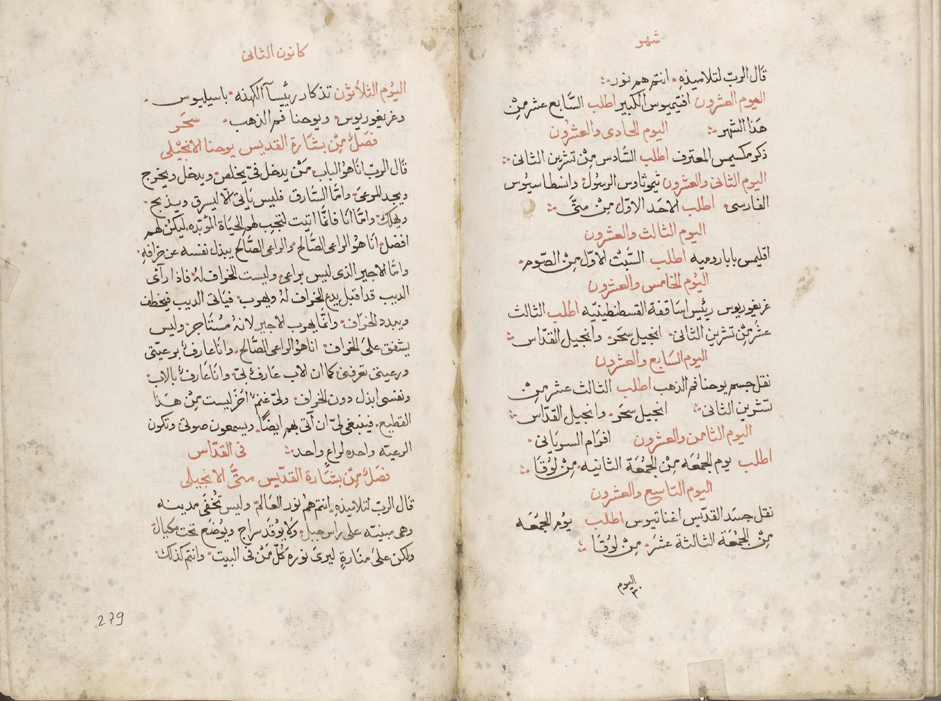 شهر
قال الربّ لتلاميذه انتم هم نور
اليوم العشرون افتيميوس الكبير اطلب السّابع عشر من
هذا الشهر اليوم الحادى والعشرون
ذكر مكسيمس المعترف اطلب السّادس من تشرين الثانى
اليوم الثانى والعشرون تيموثاوس الرسول وانسطاسيوس
الفارسى اطلب الاحد الاوّل من متّى
اليوم الثالث والعشرون
اقليمس بابا روميه اطلب السّبت الاوّل من الصّوم
اليوم الخامس والعشرون
غريغوريوس رئيس اساقفة القسطنطينيّه اطلب الثالث
عشر من تشرين الثانى انجيل سحر وانجيل القدّاس
اليوم السّابع والعشرون
نقل جسم يوحنا فم الذهب اطلب الثالث عشر من
تشرين الثانى انجيل سحر وانجيل القدّاس
اليوم الثامن والعشرون افرام السريانى
اطلب يوم الجمُعَه من الجمُعَة الثانيه من لوُقا
اليوم التاسع والعشرون
نقل جسَد القدّيس اغناتيوس اطلب يوم الجمُعَه
من الجمُعَة الثالثة عشر من لوُقا
اليوم
٣٠
كانون الثانى
اليوم الثلاثون تذكار رئيسآ الكهنه باسيليوس
وغريغوريوس ويوحنا فم الذهب سحَر
فصَلٌ من بشارة القديس يوحنا الانجيلى
قال الربّ انا هو الباب من يدخل فىّ يخلص ويدخل ويخرج
ويجد المرعى وامّا السّارق فليس ياتى الّا ليسرق ويذبح
ويهلك وامّا انا فانّما اتيت لتجب لهم الحيَاة الموبّده ليكن لهم
افضل انا هو الراعى الصّالح والراعى الصّالح يبذل نفسه عن خرافه
وامّا الاجير الذى ليس براعى وليست الخراف لهُ فاذا راى
الديب قد اقبل يدع الخراف لهُ ويهرب فياتى الديب فيخطف
ويبدد الخراف وانّما يهرب الاجير لانهُ مسُتَاجر وليس
يشفق على الخراف انا هو الراعى الصّالح وانا عارفٌ برعيّتى
ورعيتى تعرفنى كما ان الاب عارفٌ بىّ وانا عارفٌ بالاب
ونفسى ابذل دون الخراف ولىّ غنمٌ اخرُ ليست من هذا
القطيع فينبغى لىّ ان آتى بهم ايضًا ويسمعون صوتى وتكون
الرعيّه واحده لراع واحد فى القدّاس
فصَلٌ من بشارة القدّيس متّى الانجيلى
قال الربّ لتلاميذه انتم هم نور العَالم وليس تخفى مدينه
وهى مبنيّه على راس جبل ولا يوُقد سراج ويوُضع تحت مكيال
ولكن على منَارةٍ ليرى نوره كلّ من فى البيت وانتم كذلك
279